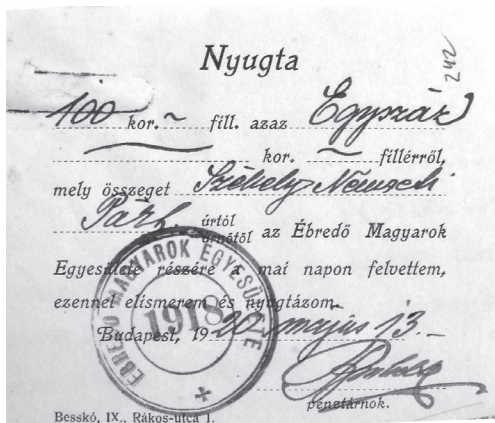 Nyugta
242
100 kor. ~ fill. azaz Egyszáz
kor. ~ fillérről,
mely összeget Székely Nemzeti
Párt. úrtól úrnőtől az Ébredő Magyarok
Egyesülete részére a mai napon felvettem,
ezennel elismerem és nyugtázom.
Budapest, 1920 május 13.
pénztárnok.
ÉBREDŐ MAGYAROK EGYESÜLETE
1918
Besskó, IX., Rákos-utca 1.